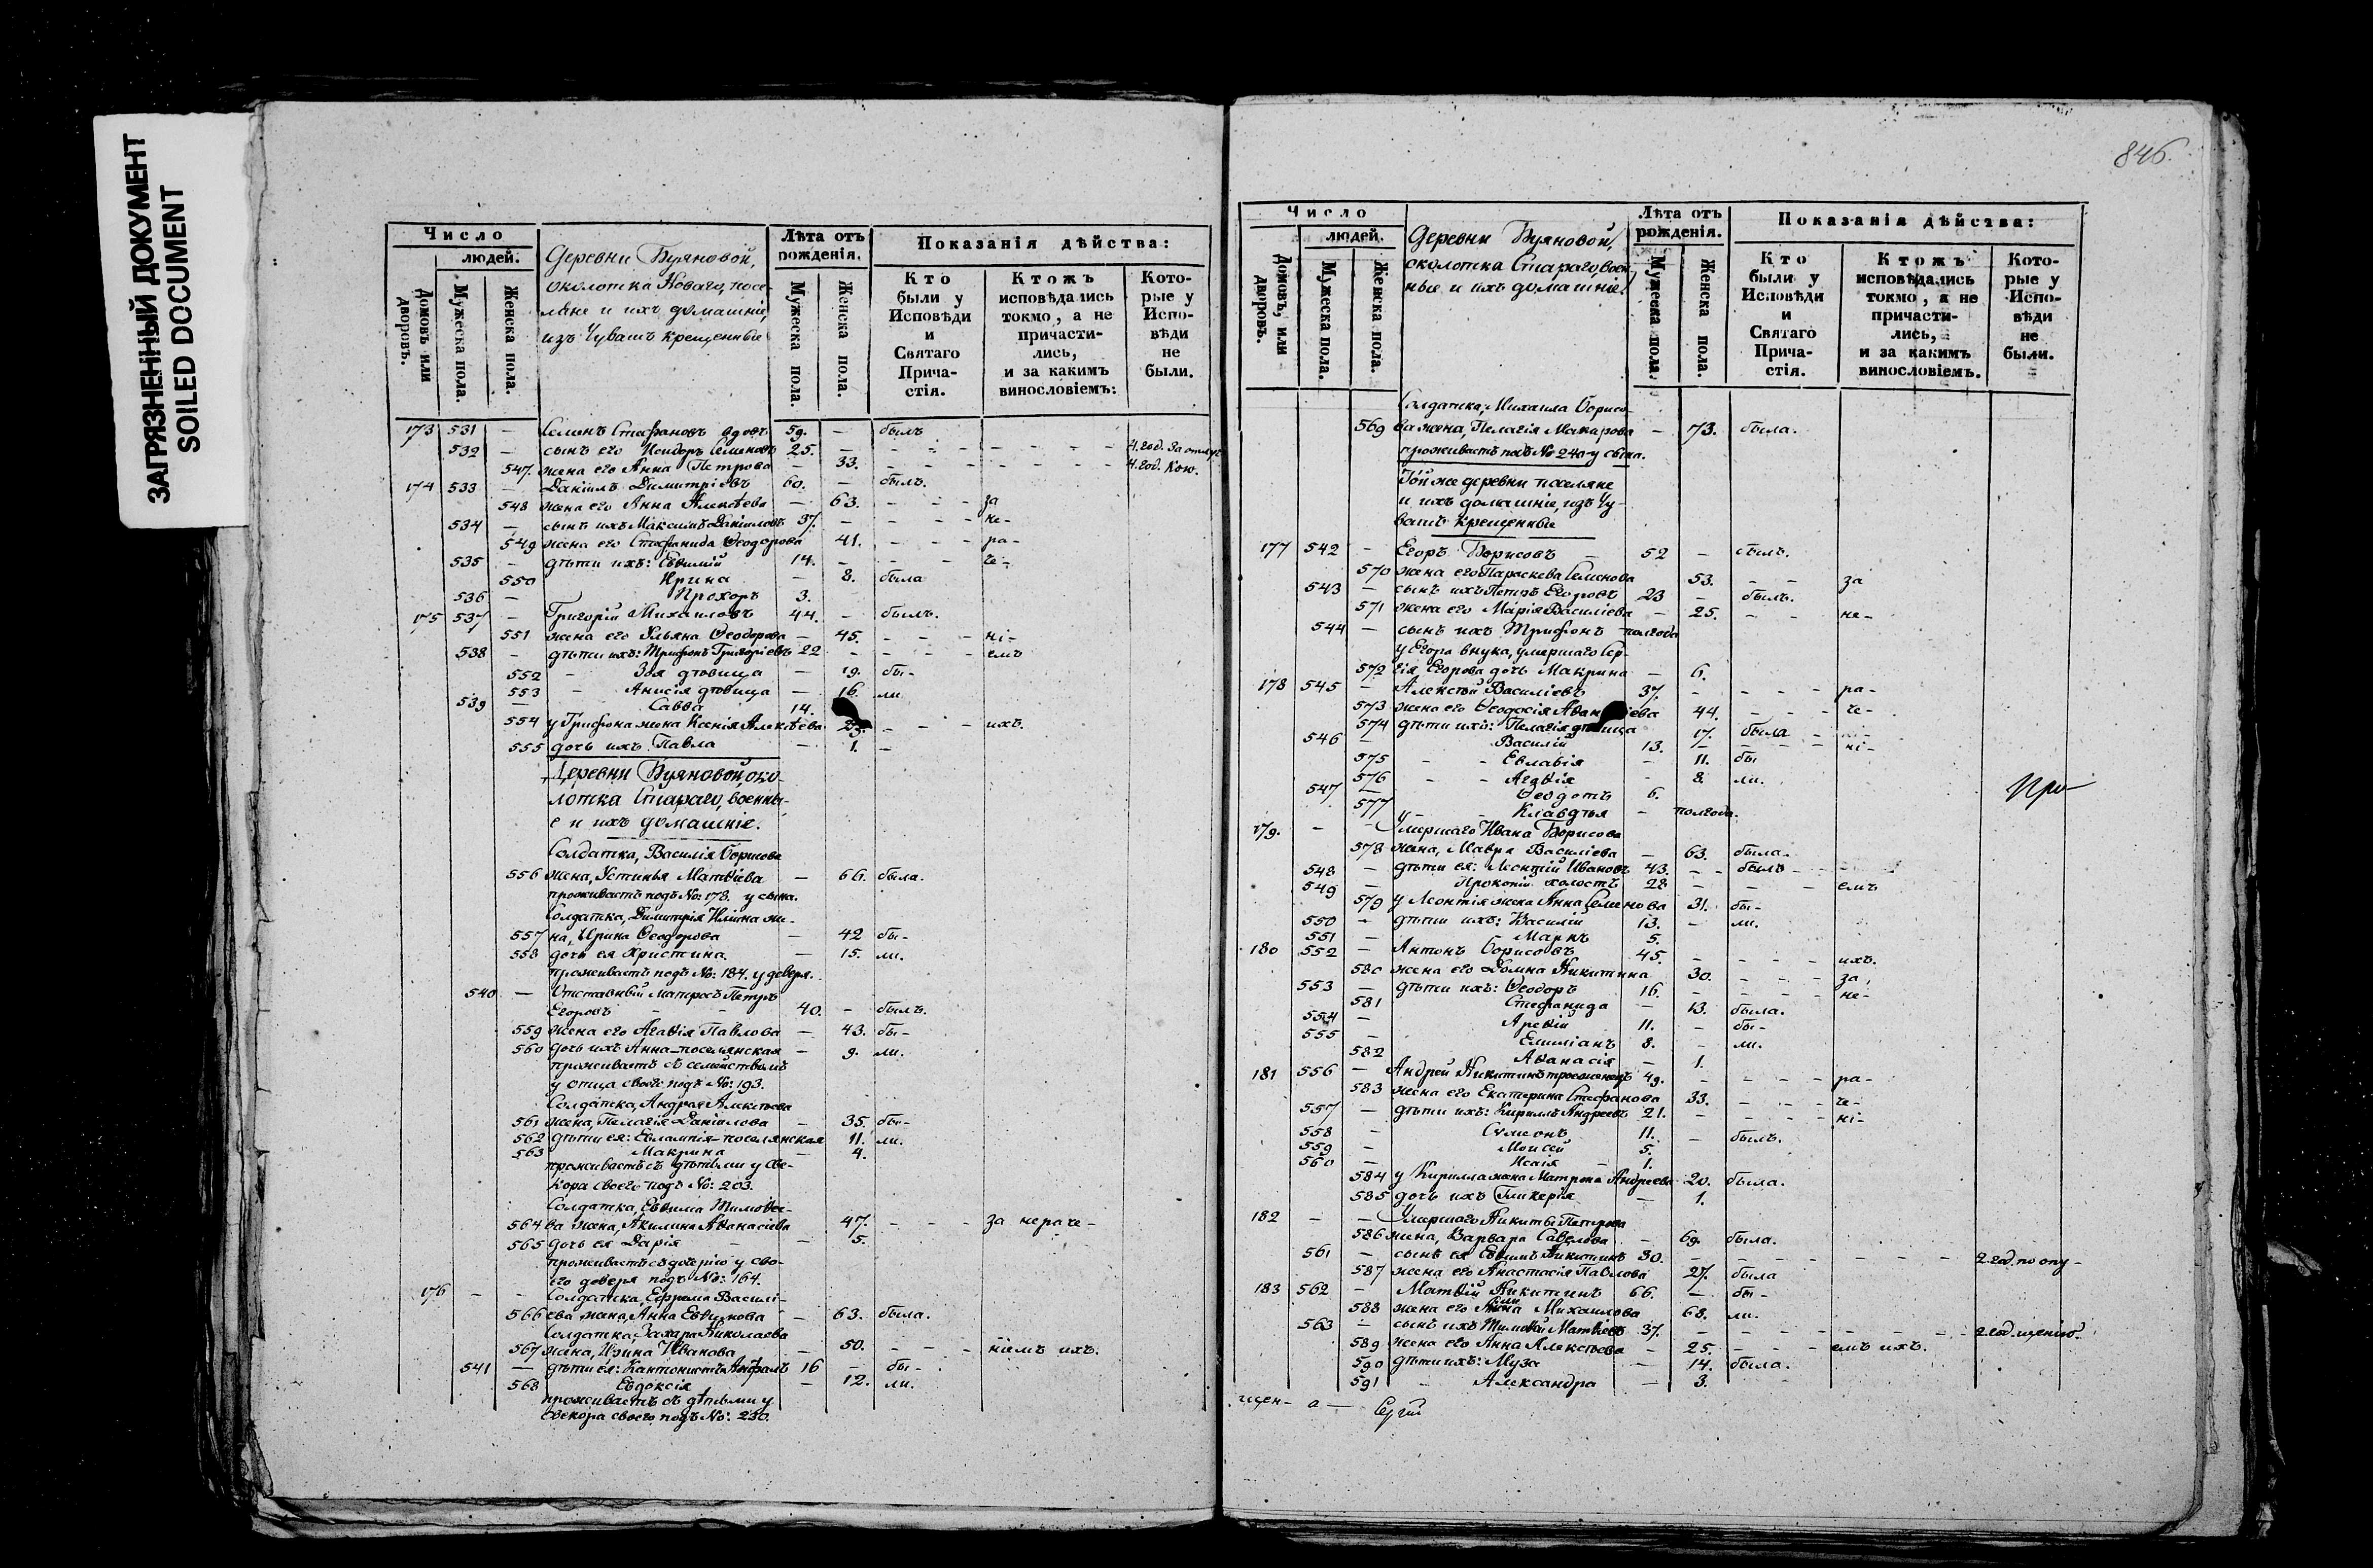 ЗАГРЯЗНЕННЫЙ ДОКУМЕНТ
SOILED DOCUMENT
Число
людей.
Домовъ или дворовъ.
Мужеска пола.
Женска пола.
Деревни Буяновой,
околотка Новаго, посе-
ляне и ихъ домашніе,
изъ Чувашъ крещенные
Лѣта отъ рожденія.
Мужеска пола.
Женска пола.
Показанія дѣйства:
Кто были у Исповѣди и Святаго Прича-стія.
Ктожъ исповѣдались токмо, а не причасти-лись, и за какимъ винословіемъ:
Кото-рые у Испо-вѣди не были.
173 531 — Семенъ Стефановъ вдовъ 59. — былъ
532 — сынъ его Исидоръ Семеновъ 25. — 4. год. За отлуч
547. жена его Анна Петрова — 33. 4. год. кою.
174 533 — Даніилъ Димитріевъ 60. — былъ.
548 жена его Анна Алексѣева — 63. за
534 — сынъ ихъ Максимъ Даніиловъ 37. — не-
549 жена его Стефанида Ѳеодорова 41. ра-
535 — дѣти ихъ: Евѳимій 14. — че-
550 Ирина — 8. была
536 — Прохоръ 3.
175 537 — Григорій Михаиловъ 44. — былъ.
551 жена его Ульяна Ѳеодорова — 45. ні-
538 — дѣти ихъ: Трифонъ Григоріевъ 22 — емъ
552 — Зоя дѣвица — 19. бы-
553 — Анисія дѣвица — 16. ли
539 — Савва 14.
554 у Трифона жена Ксенія Алексѣева 23. ихъ.
555 дочь ихъ Павла — 1. —
Деревни Буяновой, око-
лотка Стараго, военны-
е и ихъ домашніе.
Солдатка, Василія Борисова
556 жена, Устинья Матвѣева — 66. была.
проживаетъ подъ №: 178. у сына.
Солдатка, Димитрія Ильина же-
557 на, Ирина Ѳеодорова — 42 бы-
558 дочь ея Христина — 15. ли.
проживаетъ подъ №: 184. у деверя.
540 — Отставный матросъ Петръ
Егоровъ 40. — былъ.
559 жена его Агаѳія Павлова — 43. бы-
560 дочь ихъ Анна-поселянская — 9. ли.
проживаетъ съ семействомъ
у отца своего подъ №: 193.
Солдатка, Андрея Алексѣева
561 жена, Пелагія Даніилова — 35. бы-
562 дѣти ея: Евлампія-поселянская 11. ли.
563 Макрина — 4.
проживаетъ съ дѣтьми у све-
кора своего подъ №: 203.
Солдатка, Евѳима Тимоѳее-
564 ва жена, Акилина Аѳанасіева 47. за нераче-
565 дочь ея Дарія — 5.
проживаетъ съ дочерію у сво-
его деверя подъ №: 164.
176 — — Солдатка, Ефрема Василі-
566 ева жена, Анна Евѳимова — 63. была.
Солдатка, Захара Николаева
567 жена, Ирина Иванова — 50. ніемъ ихъ.
541 — дѣти ея: Кантонистъ 16 — бы-
568 Евдоксія — 12. ли.
проживаетъ съ дѣтьми у
свекора своего подъ №: 230.
846.
Число
людей.
Домовъ, или дворовъ.
Мужеска пола.
Женска пола.
Деревни Буяновой,
околотка Стараго, воен-
ные и ихъ домашніе
Лѣта отъ рожденія.
Мужеска пола.
Женска пола.
Показанія дѣйства:
Кто были у Исповѣди и Святаго Прича-стія.
Ктожъ исповѣдались токмо, а не причасти-лись, и за какимъ винословіемъ.
Кото-рые у Испо-вѣди не были.
Солдатка, Михаила Борисо-
569 ва жена, Пелагія Макарова — 73. была.
проживаетъ подъ № 240 у сына.
Той же деревни поселяне
и ихъ домашніе, изъ Чу-
вашъ крещенные
177 542 — Егоръ Борисовъ — 52 — былъ.
570 жена его Параскева Семенова 53. за
543 — сынъ ихъ Петръ Егоровъ 23 — былъ.
571 жена его Марія Василіева — 25. не-
544 — сынъ ихъ Трифонъ — полгода
у Егора внука, умершаго Сер-
572 гія Егорова дочь Макрина — 6.
178 545 — Алексѣй Василіевъ 37. — ра-
573 жена его Ѳеодосія 44. че-
574 дѣти ихъ: Пелагія дѣвица 17. была
546 — Василій 13. — ні-
575 — Евлавія — 11. бы
576 — Агаѳія — 8. ли.
547 — Ѳеодотъ 6.
577 — Клавдія — полгода.
179. — — Умершаго Ивана Борисова
578 жена, Мавра Василіева — 63. была.
548 — дѣти ея: Леонтій Ивановъ 43. — былъ
549 — Прокопій холостъ 28 — емъ
579 у Леонтія жена Анна Семенова 31. бы-
550 — дѣти ихъ: Василій 13. — ли.
551 — Маркъ 5.
180 552 — Антонъ Борисовъ 45. — ихъ.
580 жена его Домна Никитина 30. за
553 — дѣти ихъ: Ѳеодоръ 16. — не-
581 Стефанида — 13. была.
554 — Арефій 11. — бы-
555 — Емиліанъ 8. — ли.
582 Аѳанасія — 1.
181 556 — Андрей Никитинъ троеженецъ 49. ра-
583 жена его Екатерина Стефанова 33. че-
557 — дѣти ихъ: Кириллъ Андреевъ 21. — ні-
558 — Сѵмеонъ 11. — былъ.
559 — Моисей 5.
560 — Исаія — 1.
584 у Кирилла жена Матрона Андреева 20. была.
585 дочь ихъ Гликерія — 1.
182 — — Умершаго Никиты Петрова
586 жена, Варвара Савелова — 69. была.
561 — сынъ ея Евѳимъ Никитинъ 30. — 2. год. по опу-
587 жена его Анастасія Павлова 27. была
183 562 — Матвѣй Никитинъ 66. — бы-
588 жена его Михаилова 68. ли.
563 — сынъ ихъ Тимоѳей Матвѣевъ 37. — 2. год. щенію.
589 жена его Анна Алексѣева — 25. емъ ихъ.
590 дѣти ихъ: Муза — 14. была.
591 — Александра — 3.
щен- а — Сергій